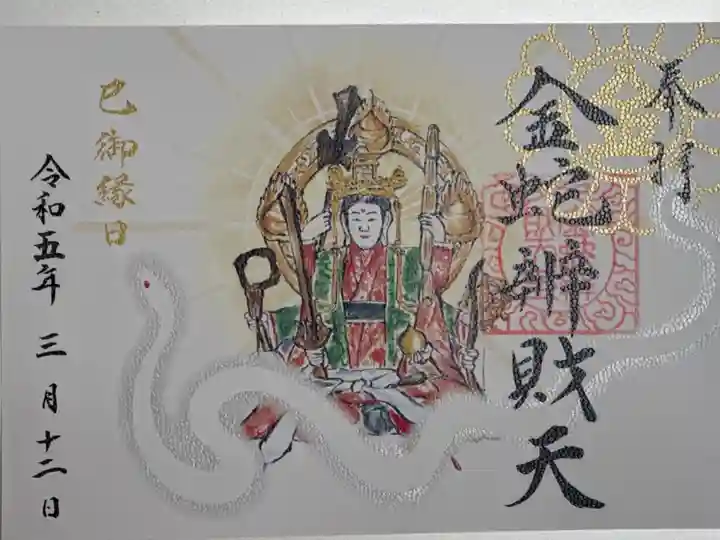 奉拝
金蛇辨財天
巳御縁日
令和五年 三月十二日